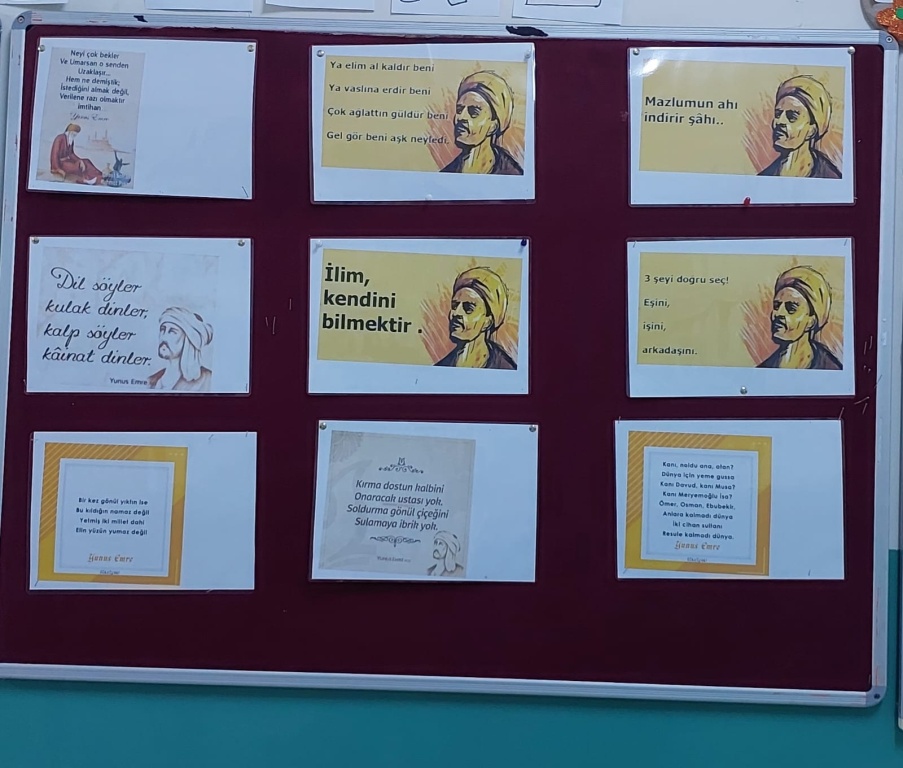 Neyi çok bekler
Ve Umarsan o senden
Uzaklaşır...
Hem ne demiştik;
İstediğini almak değil,
Verilene razı olmaktır
imtihan
Yunus Emre
Ya elim al kaldır beni
Ya vaslına erdir beni
Çok aglattın güldür beni
Gel gör beni aşk neyledi.
Mazlumun ahı
indirir şâhı..
Dil söyler
kulak dinler;
kalp söyler
kâinat dinler.
Yunus Emre
İlim,
kendini
bilmektir .
3 şeyi doğru seç!
Eşini,
işini,
arkadaşını.
Bir kez gönül yıktın ise
Bu kıldığın namaz değil
Yetmiş iki millet dahi
Elin yüzün yumaz değil
Yunus Emre
Kırma dostun kalbini
Onaracak ustası yok.
Soldurma gönül çiçeğini
Sulamaya ibrik yok.
Yunus Emre
Kanı, noldu ana, atan?
Dünya için yeme gussa
Kanı Davud, kanı Musa?
Kanı Meryemoğlu İsa?
Ömer, Osman, Ebubekir,
Anlara kalmadı dünya
İki cihan sultanı
Resule kalmadı dünya.
Yunus Emre